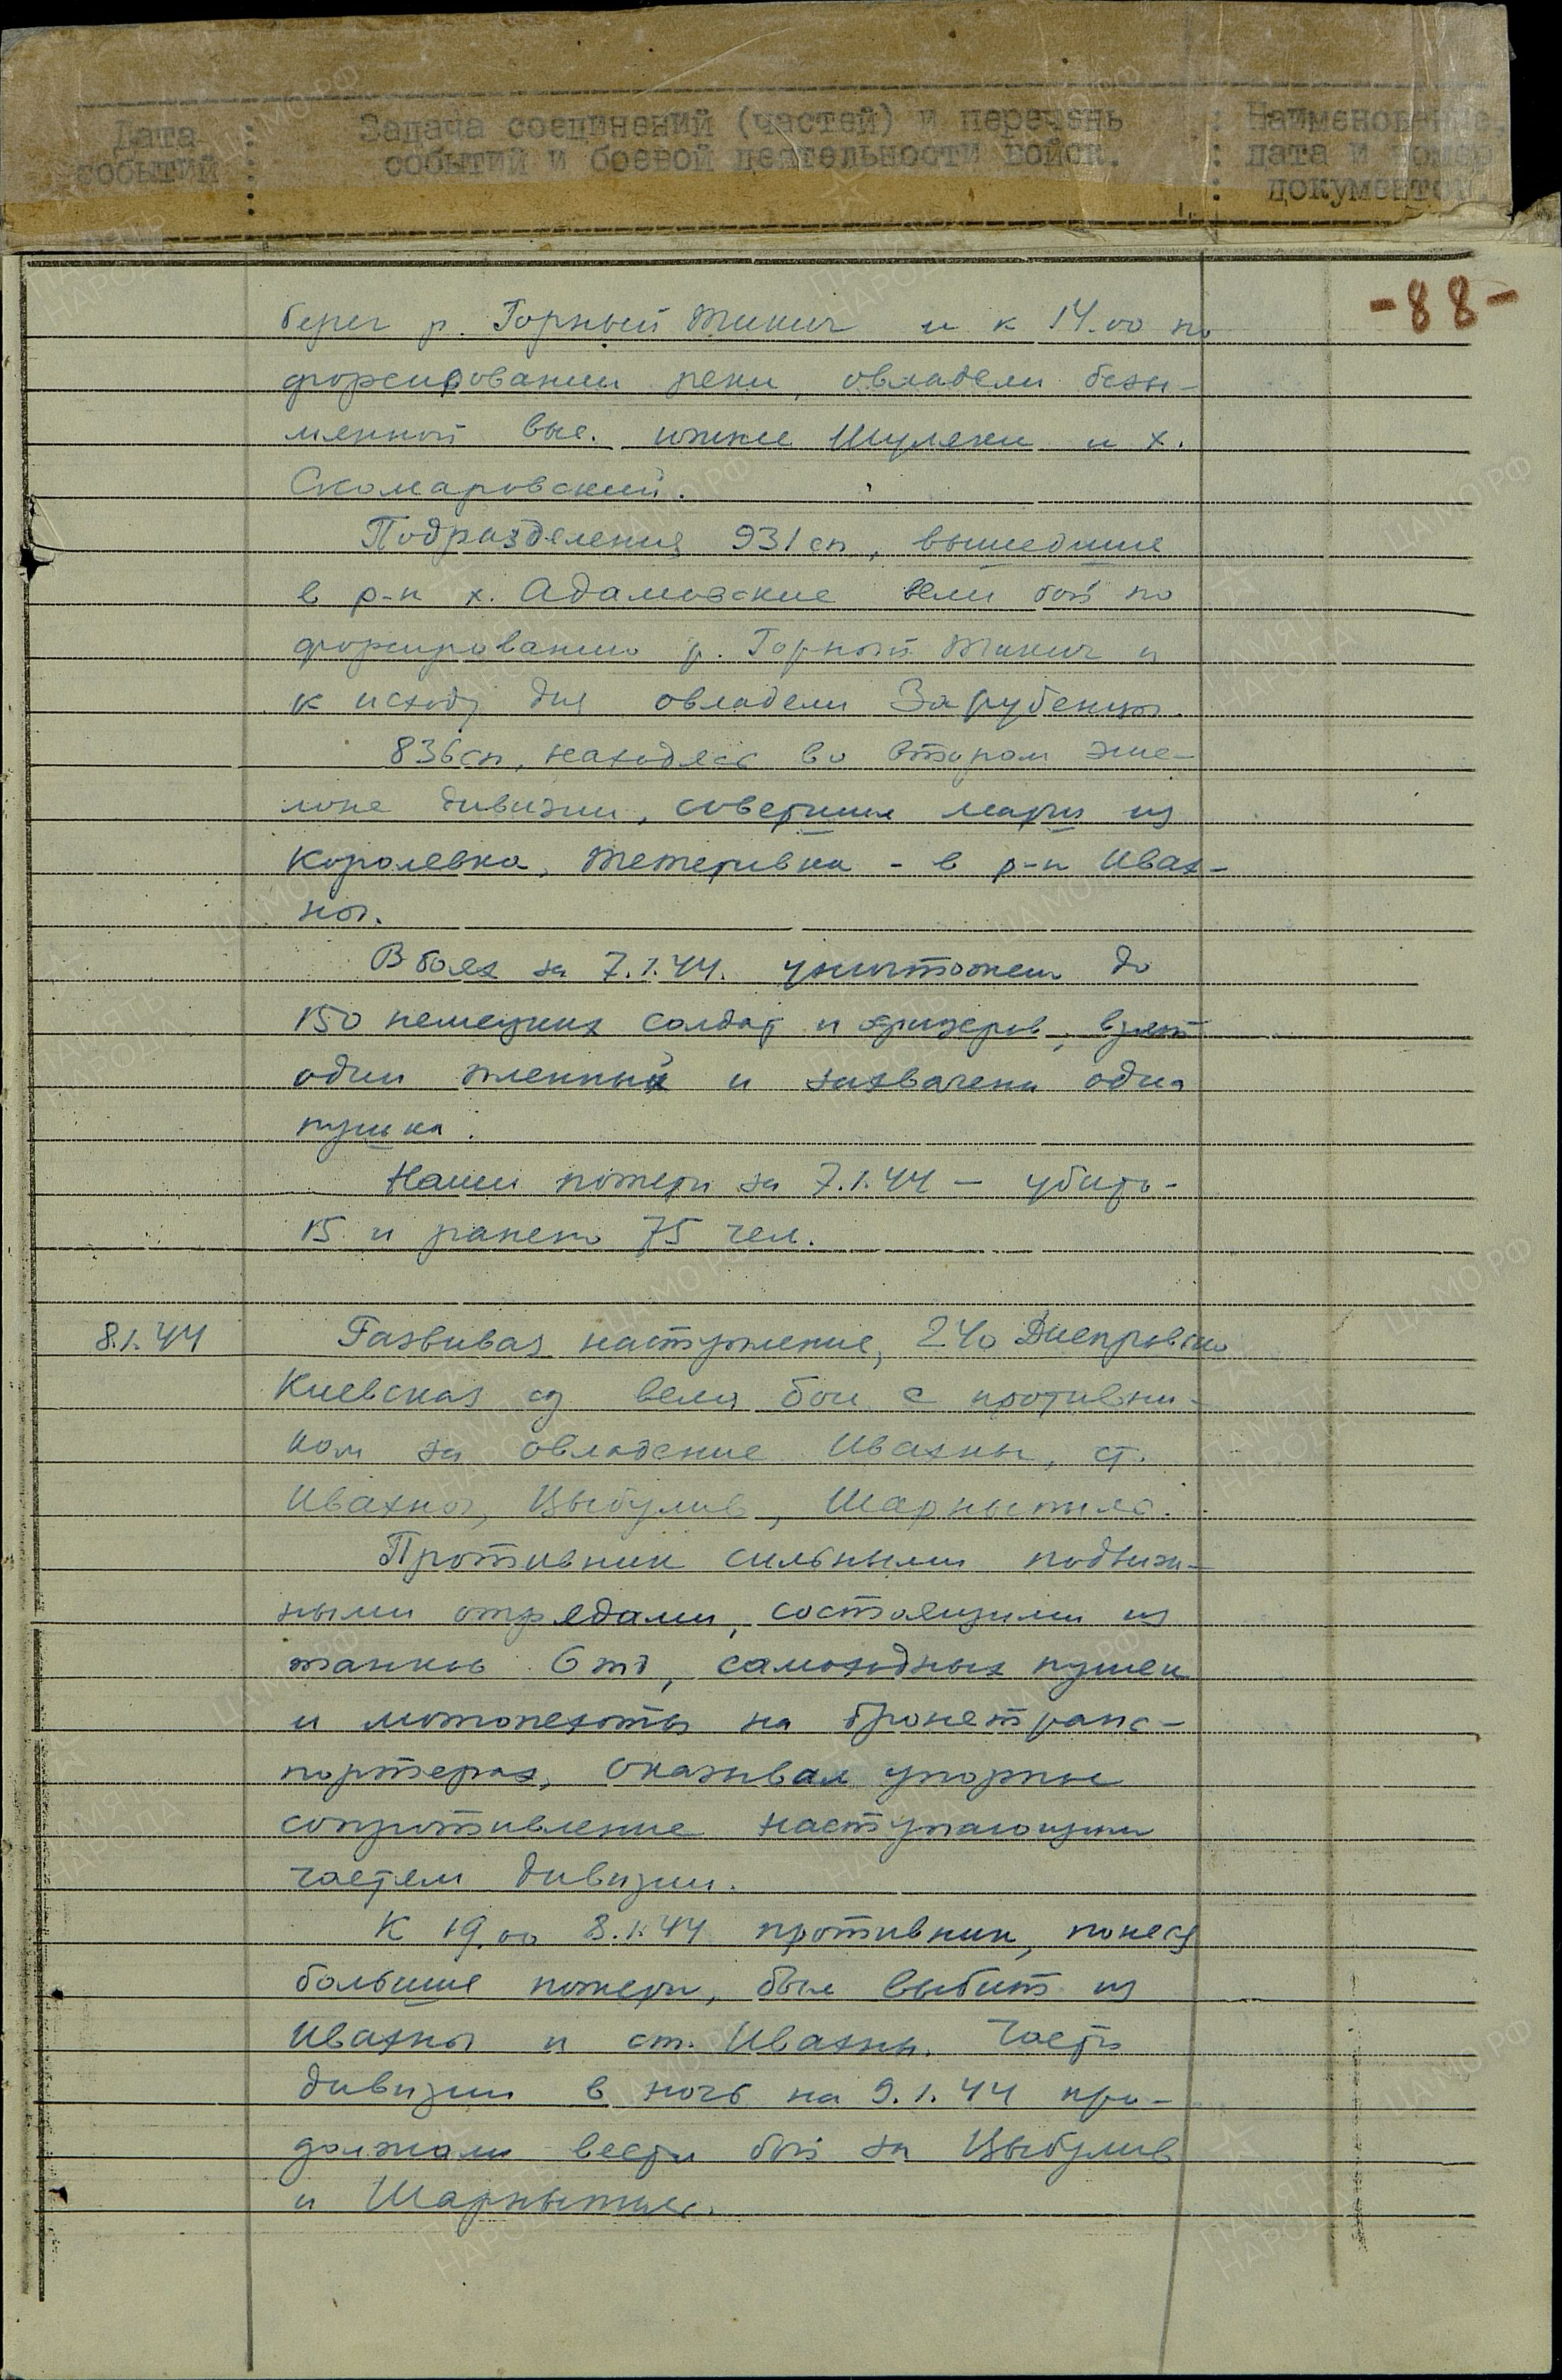 Дата событий : Задача соединений (частей) и перечень событий и боевой деятельности войск. : Наименование, дата и номер документов.
-88-
берег р. Горный Тикич и к 14.00 по
форсировании реки, овладели безы-
мянной выс. южнее Шуляки и х.
Скомаровский.
Подразделения 931 сп, вышедшие
в р-н х. Адамовские вели бой по
форсированию р. Горный Тикич и
к исходу дня овладели Зарубенцы.
836 сп, находясь во втором эше-
лоне дивизии, совершил марш из
Королевка, Тетеревка - в р-н Ивах-
ны.
В боях за 7.1.44. уничтожено до
150 немецких солдат и офицеров, взят
один пленный и захвачена одна
пушка.
Наши потери за 7.1.44 — убито -
15 и ранено 75 чел.
8.1.44 Развивая наступление, 240 Днепровско
Киевская сд вела бои с противни-
ком за овладение Ивахны, ст.
Ивахны, Цыбулив, Шарныпиль.
Противник сильными подвиж-
ными отрядами, состоящими из
танков 6 тд, самоходных пушек
и мотопехоты на бронетранс-
портерах, оказывал упорное
сопротивление наступающим
частям дивизии.
К 19.00 8.1.44 противник, понеся
большие потери, был выбит из
Ивахны и ст. Ивахны. Части
дивизии в ночь на 9.1.44 про-
должали вести бой за Цыбулив
и Шарныпиль.